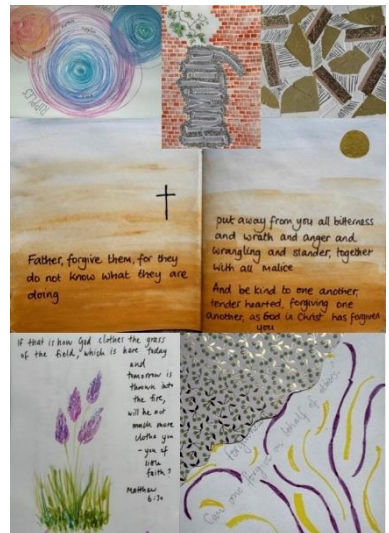 RIPPLES
Father, forgive them, for they
do not know what they are
doing
put away from you all bitterness
and wrath and anger and
wrangling and slander, together
with all malice
And be kind to one another,
tender hearted, forgiving one
another, as God in Christ has forgiven
you
If that is how God clothes the grass
of the field, which is here today
and
tomorrow is
thrown into
the fire,
will he not
much more
clothe you
- you of
little
faith?
Matthew
6:30
Can one forgive on behalf of others?